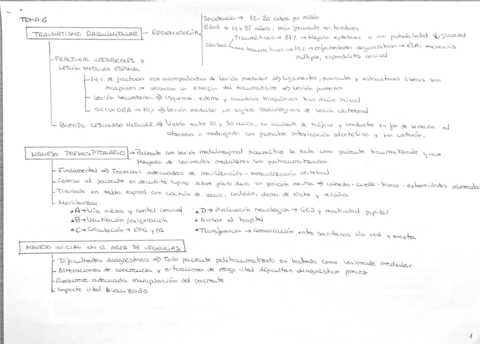 TEMA 6
TRAUMATISMO RAQUIMEDULAR → EPIDEMIOLOGÍA
Incidencia → 12-20 casos por millón
Edad → 15 y 35 años, más frecuente en hombres
Causas
Traumáticas → 85% → tráfico
No traumáticas → enfermedades degenerativas → ELA, esclerosis múltiple, espondilitis cervical
FRACTURA VERTEBRAL Y LESIÓN MEDULAR ESPINAL
14% de fracturas van acompañadas de lesión medular → ligamentos, músculos y estructuras óseas son incapaces de absorber la energía del traumatismo → lesión primaria
Lesión secundaria → isquemia, edema y cambios bioquímicos tras daño inicial
SCIWORA → lesión medular sin signos radiológicos de lesión vertebral
BIOTIPO LESIONADO MEDULAR → Varón entre 20 y 30 años, en accidente de tráfico y conductor en fin de semana al atardecer o madrugada con probable intoxicación alcohólica y sin cinturón.
MANEJO PREHOSPITALARIO → Paciente con lesión medular traumática se trata como paciente traumatizado grave.
Mayoría de lesionados medulares son politraumatizados.
Fundamental → Técnicas adecuadas de movilización - inmovilización vertebral
Colocar al paciente en decúbito supino sobre plano duro en posición neutra → cabeza - cuello - tronco - extremidades alineadas
Traslado en tabla espinal con colchón de vacío, collarín, dama de elche y araña
Monitorizar
★A → Vía aérea y control cervical
★B → Ventilación/oxigenación
★C → Circulación → EKG y TA
★D → evaluación neurológica → GCS y reactividad pupilar
Avisar al hospital
Transferencia → comunicación entre sanitarios vía oral y escrita
MANEJO INICIAL EN EL ÁREA DE URGENCIAS
Dificultades diagnósticas → Todo paciente politraumatizado es tratado como lesionado medular
Alteraciones de conciencia y situaciones de riesgo vital dificultan diagnóstico precoz
Requiere adecuada manipulación del paciente
Soporte vital avanzado
1